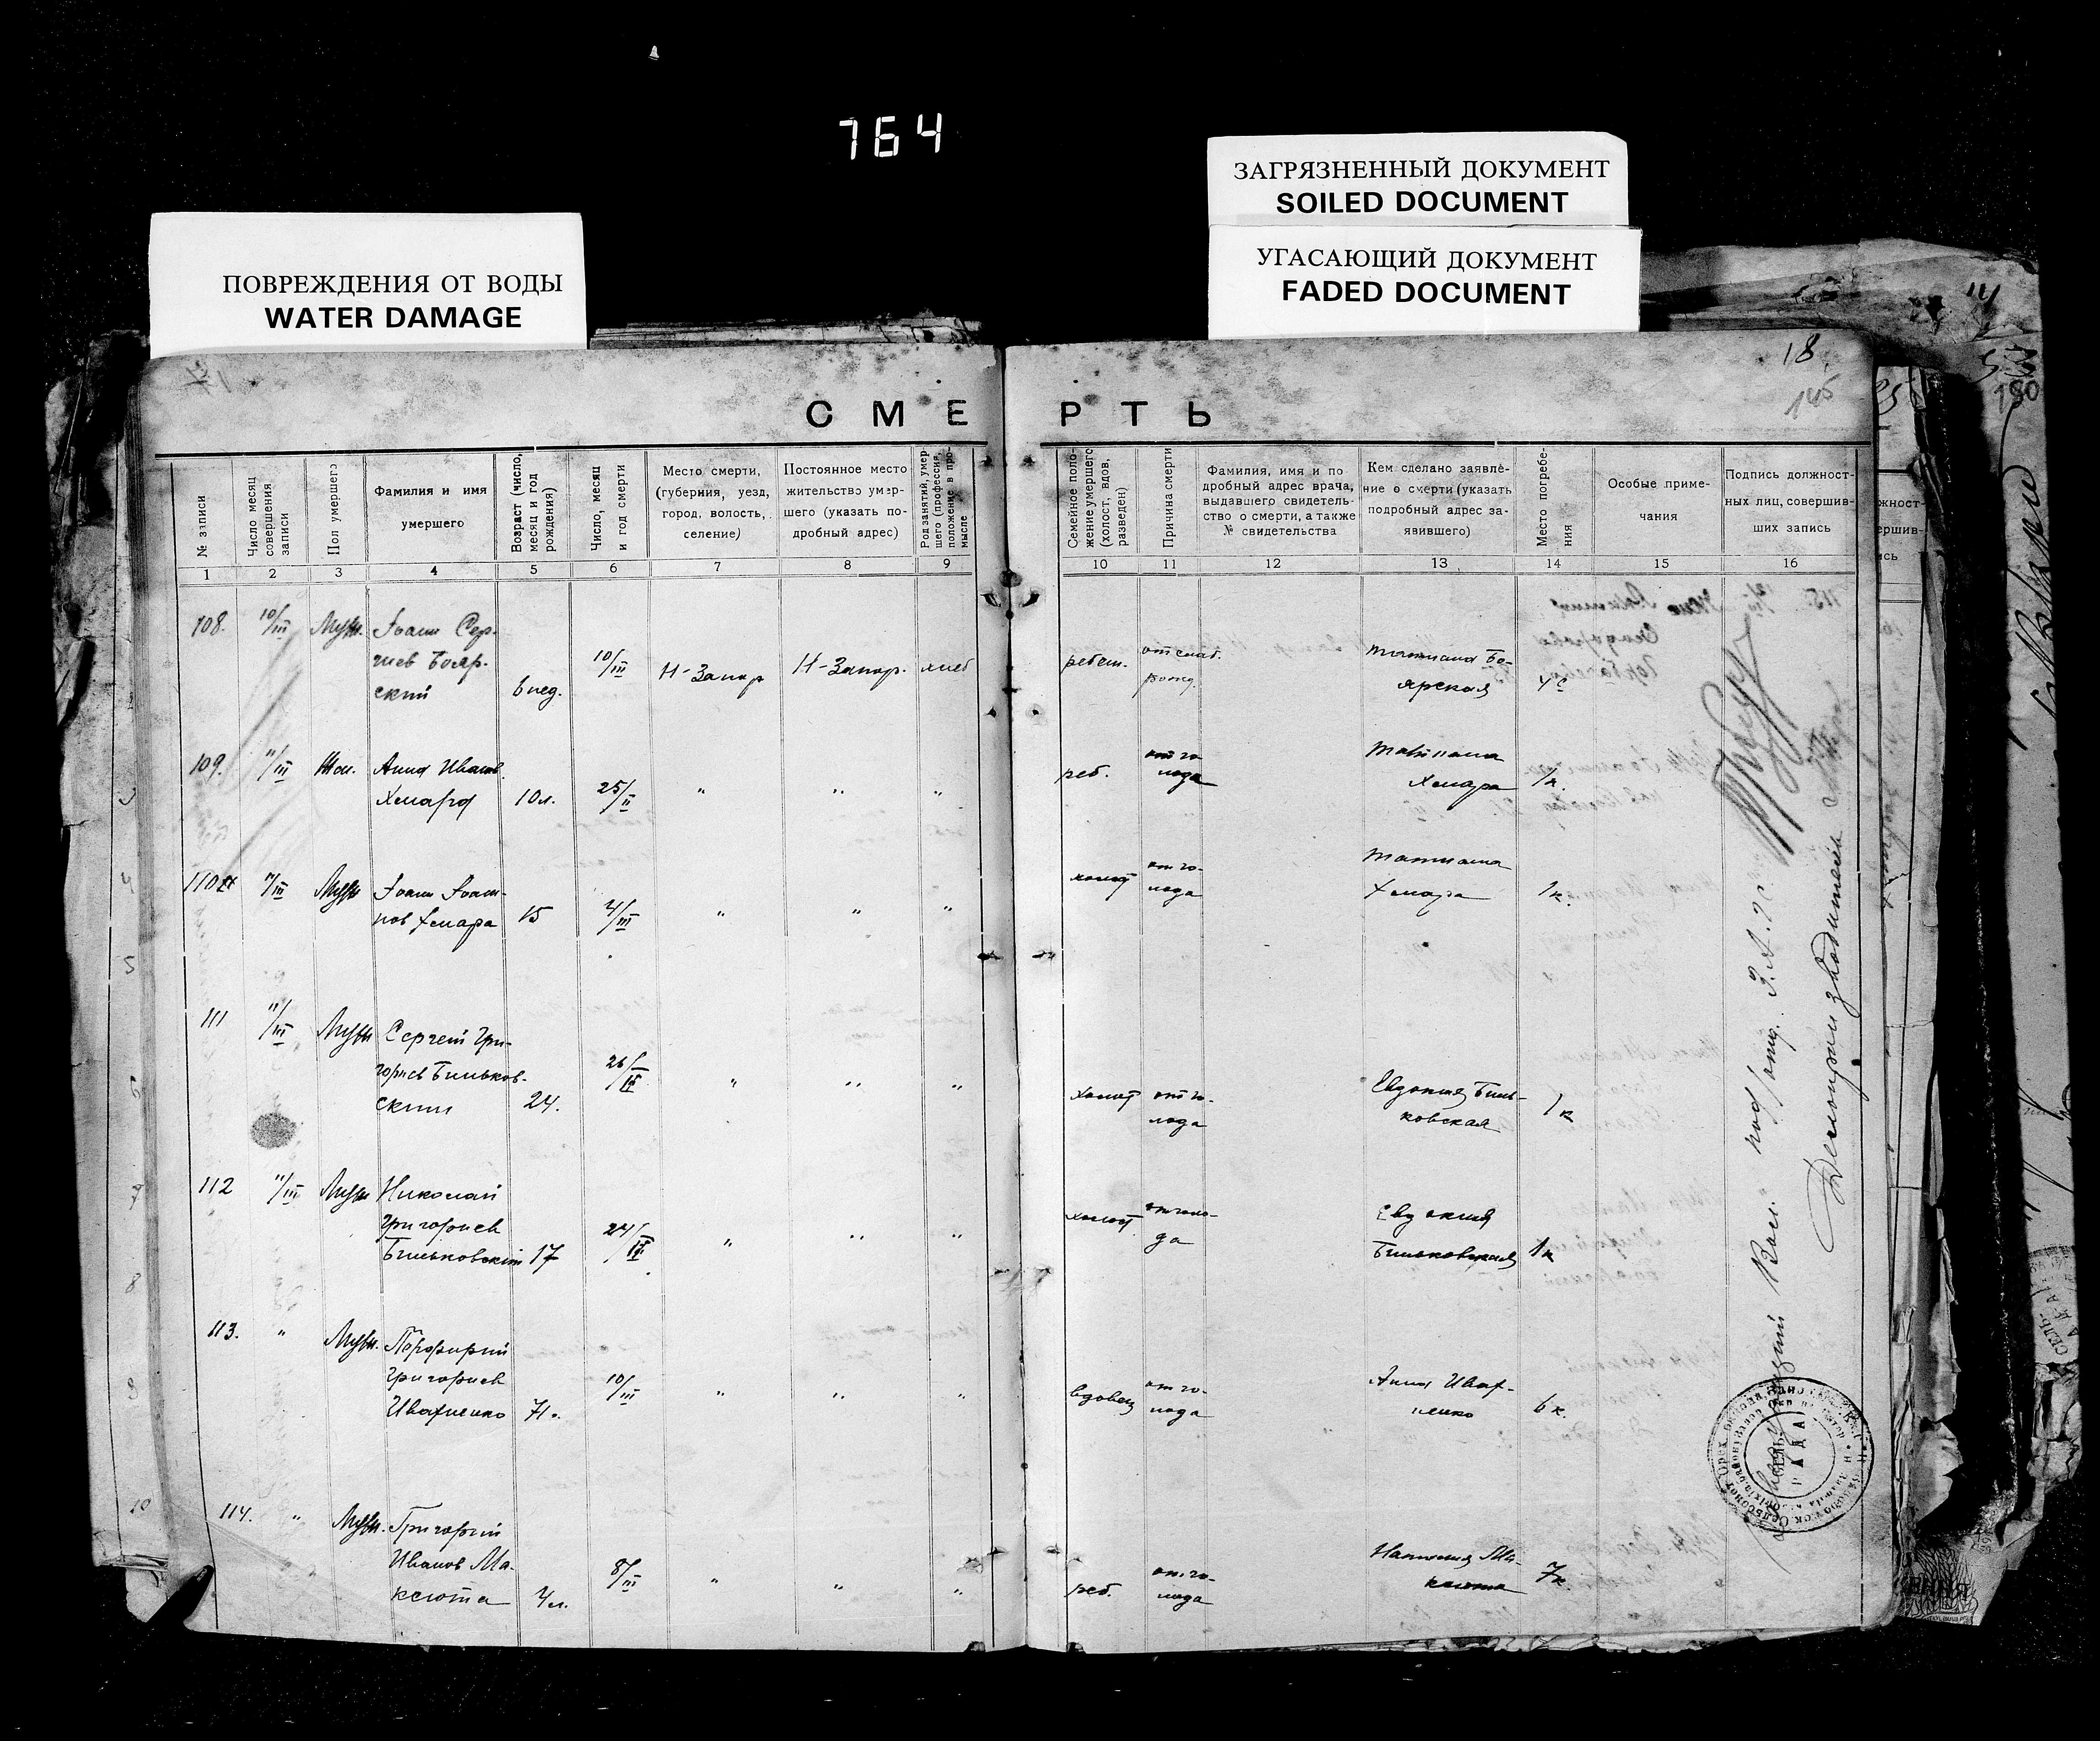 764
ПОВРЕЖДЕНИЯ ОТ ВОДЫ
WATER DAMAGE
ЗАГРЯЗНЕННЫЙ ДОКУМЕНТ
SOILED DOCUMENT
УГАСАЮЩИЙ ДОКУМЕНТ
FADED DOCUMENT
18
СМЕРТЬ
№ записи
Число месяц
совершения
записи
Пол умершего
Фамилия и имя
умершего
Возраст (число,
месяц и год
рождения)
Число, месяц
и год смерти
Место смерти,
(губерния, уезд,
город, волость,
селение)
Постоянное место
жительство умер-
шего (указать по-
дробный адрес)
Род занятий, умер-
шего (профессия,
положение в про-
мысле
Семейное поло-
жение умершего
(холост, вдов,
разведен)
Причина смерти
Фамилия, имя и по
дробный адрес врача,
выдавшего свидетель-
ство о смерти, а также
№ свидетельства
Кем сделано заявле-
ние о смерти (указать
подробный адрес за-
явившего)
Место погребе-
ния
Особые приме-
чания
Подпись должност-
ных лиц, совершив-
ших запись
1 2 3 4 5 6 7 8 9 10 11 12 13 14 15 16
108. 10/III Муж. Иоанн Сер-
гиев Бояр-
ский 6 нед. 10/III Н-Запор Н-Запор. хлеб
ребен. от слаб.
рожд. Татиана Бо-
ярская
109. 11/III Жен. Анна Иванов.
Хмара 10 л. 25/II " " "
реб. от го-
лода Татиана
Хмара 1 к.
110 11/III Муж Иоанн Иоан-
нов Хмара 15 4/III " " "
холост от го-
лода Татиана
Хмара 1 к.
111 11/III Муж Сергей Гри-
горьев Бильков-
ский 24. 26/II " " "
холост от го-
лода Евдокия Биль-
ковская 1 к
112 11/III Муж Николай
Григориев
Бильковский 17 24/II " " "
холост от голо-
да Евдокия
Бильковская 1 к
113. " Муж. Порфирий
Григориев
Ивахненко 71. 10/III " " "
вдовец от го-
лода Анна Ивах-
ненко 6 к.
114. " Муж. Григорий
Иванов Ма-
ксюта 4 л. 8/III " " "
реб. от го-
лода Наталия Ма-
ксюта 7 к.
Делопроизводитель
РАДА